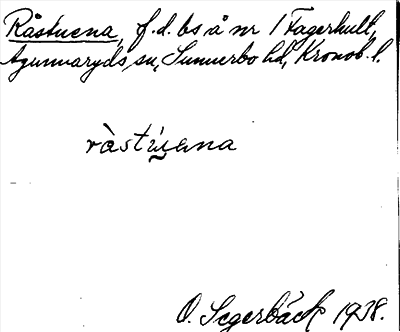 Råstuena, f.d. bs å nr 1 Fagerhult,
Agunnaryds sn, Sunnerbo hd, Kronob. l.
ràstúena
O. Segerbäck 1938.